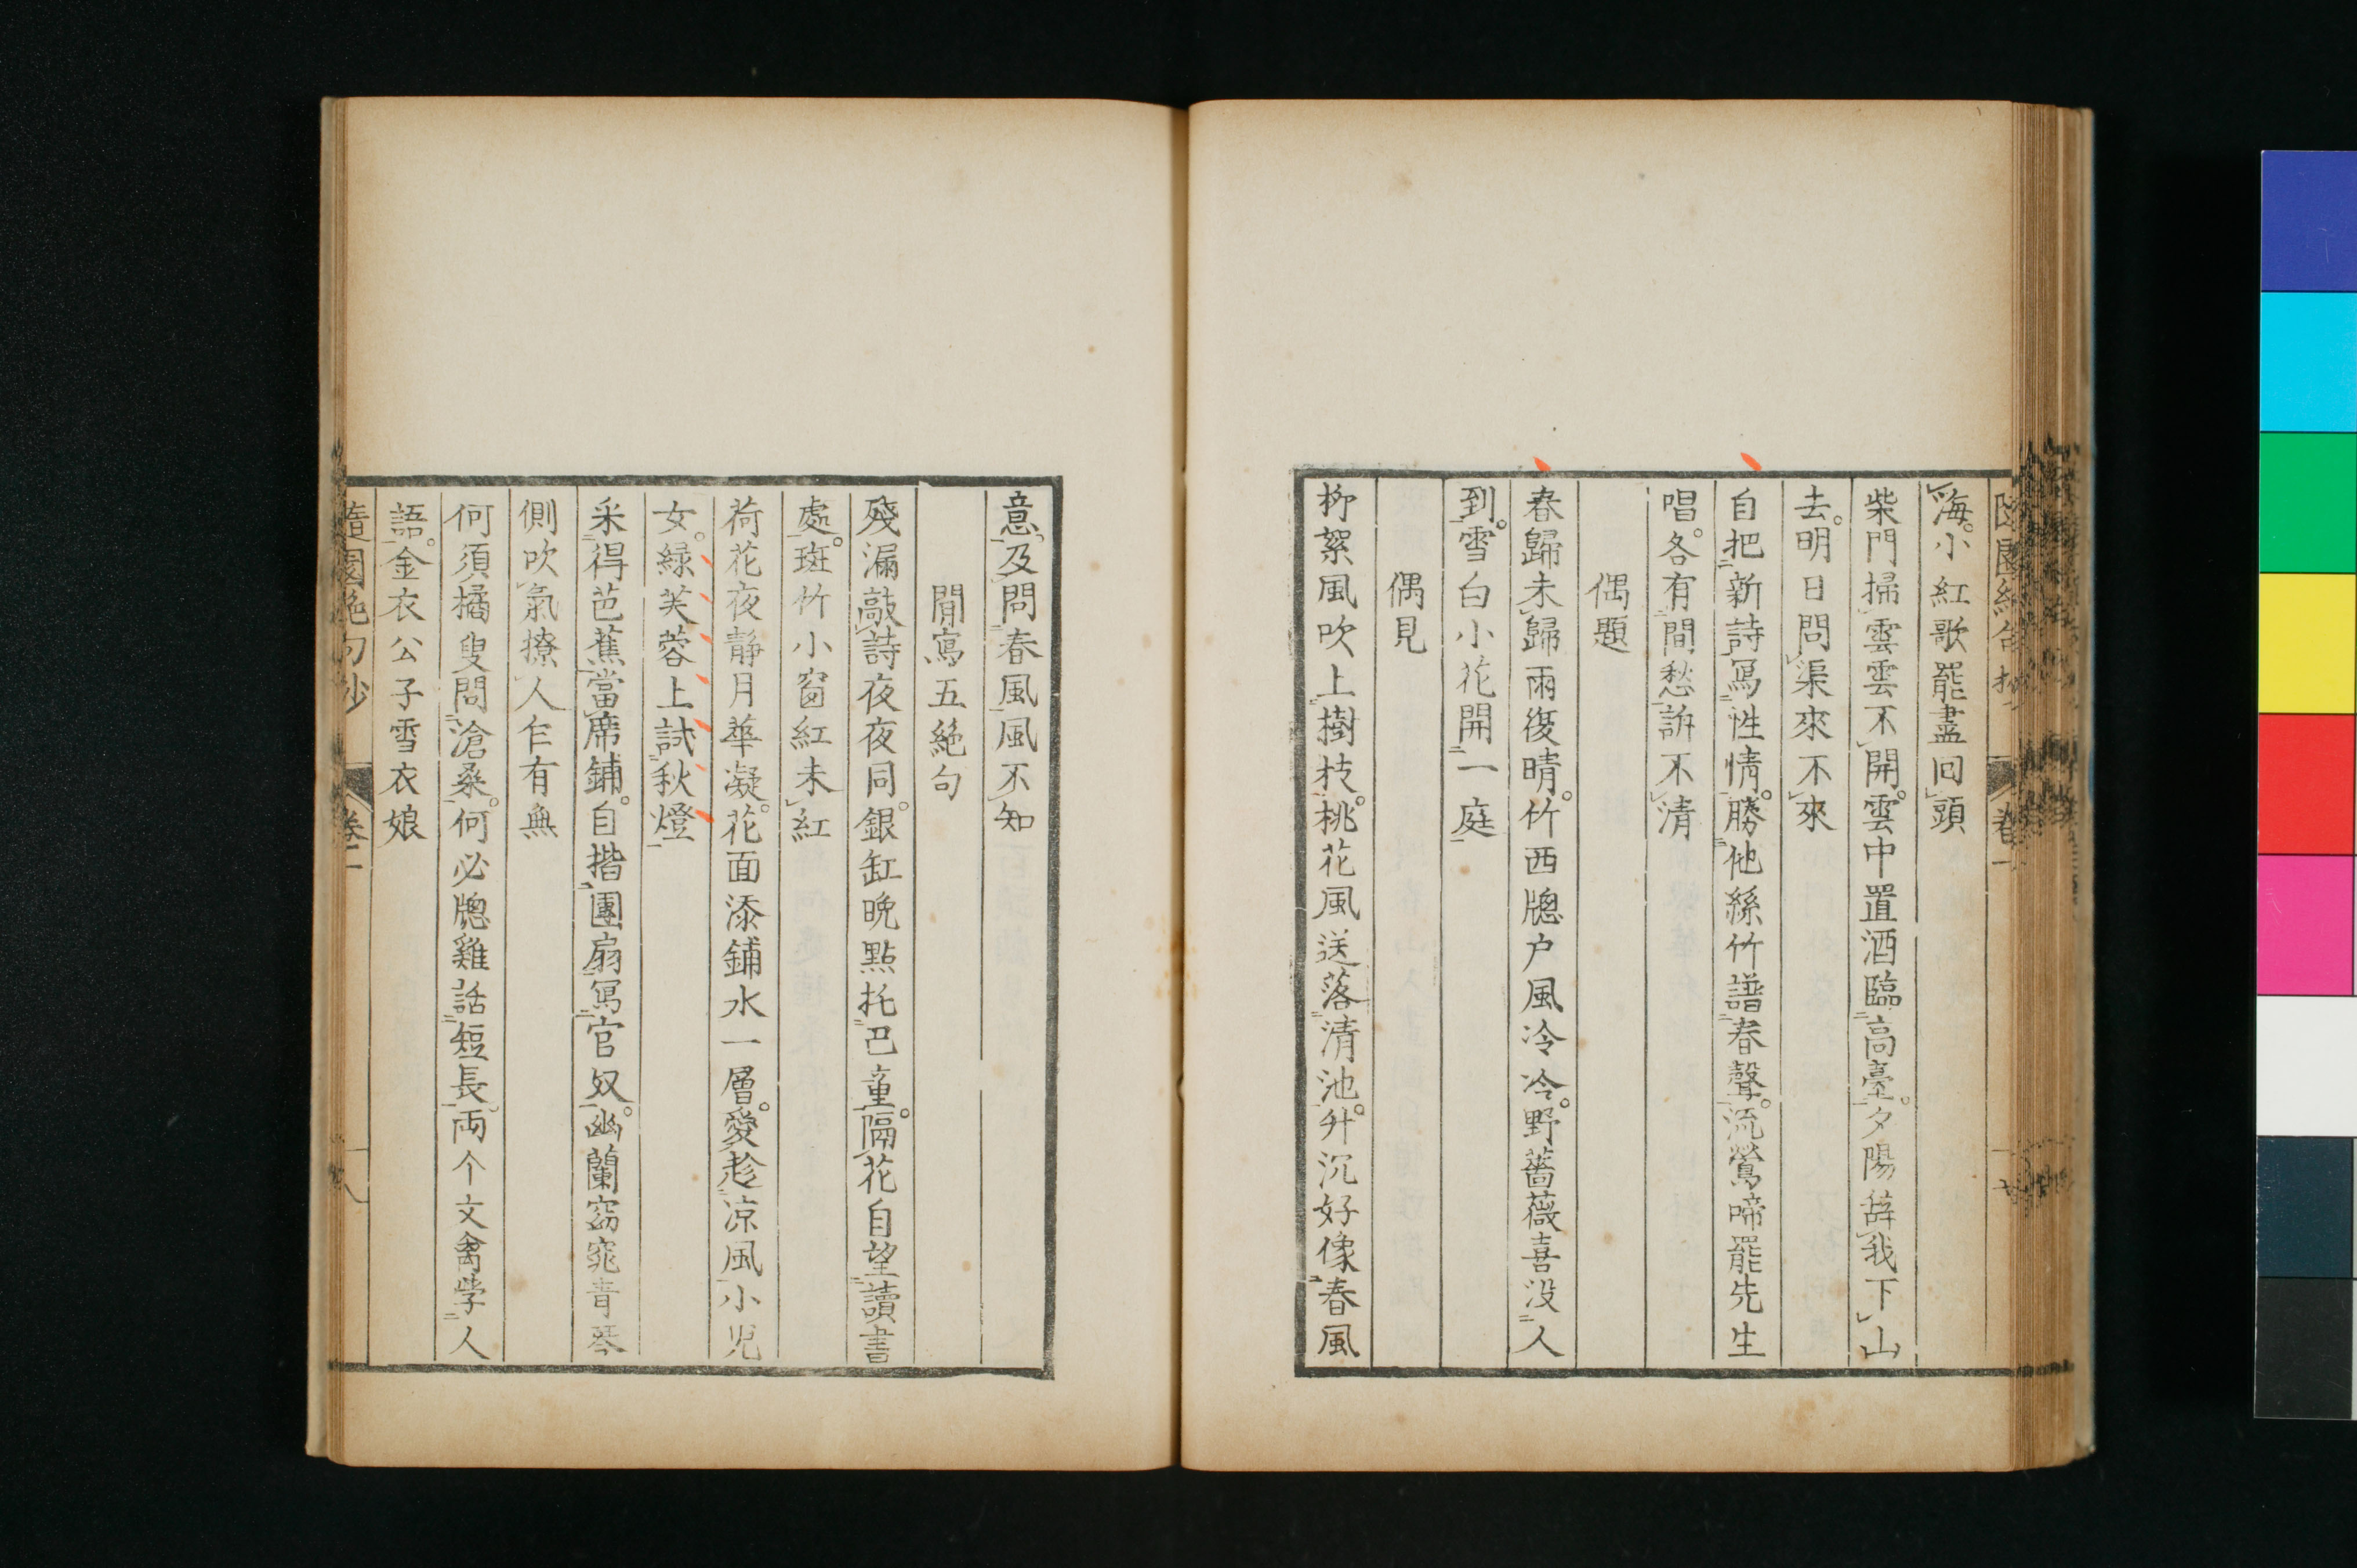 海。小紅歌罷盡回頭
柴門掃雲雲不開。雲中置酒臨高臺。夕陽辭我下山
去。明日問渠來不來
自把新詩寫性情。勝他絲竹譜春聲。流鶯啼罷先生
唱。各有間愁訴不清
偶題
春歸未歸雨復晴。竹西牕户風冷冷。野薔薇喜没人
到。雪白小花開一庭
偶見
柳絮風吹上樹枝。桃花風送落清池。升沉好像春風
意及問春風風不知
閒寫五絶句
殘漏敲詩夜夜同。銀缸晩點托巴童。隔花自望讀書
處。斑竹小窗紅未紅
荷花夜靜月華凝。花面添鋪水一層。愛趁凉風小児
女。緑芙蓉上試秋燈
采得芭蕉當席鋪。自揩團扇寫官奴。幽蘭窈窕青琴
側吹氣撩人乍有無
何須橘叟問滄桑。何必牕雞話短長両个文禽学人
語。金衣公子雪衣娘
隨園絶句抄
卷二
八